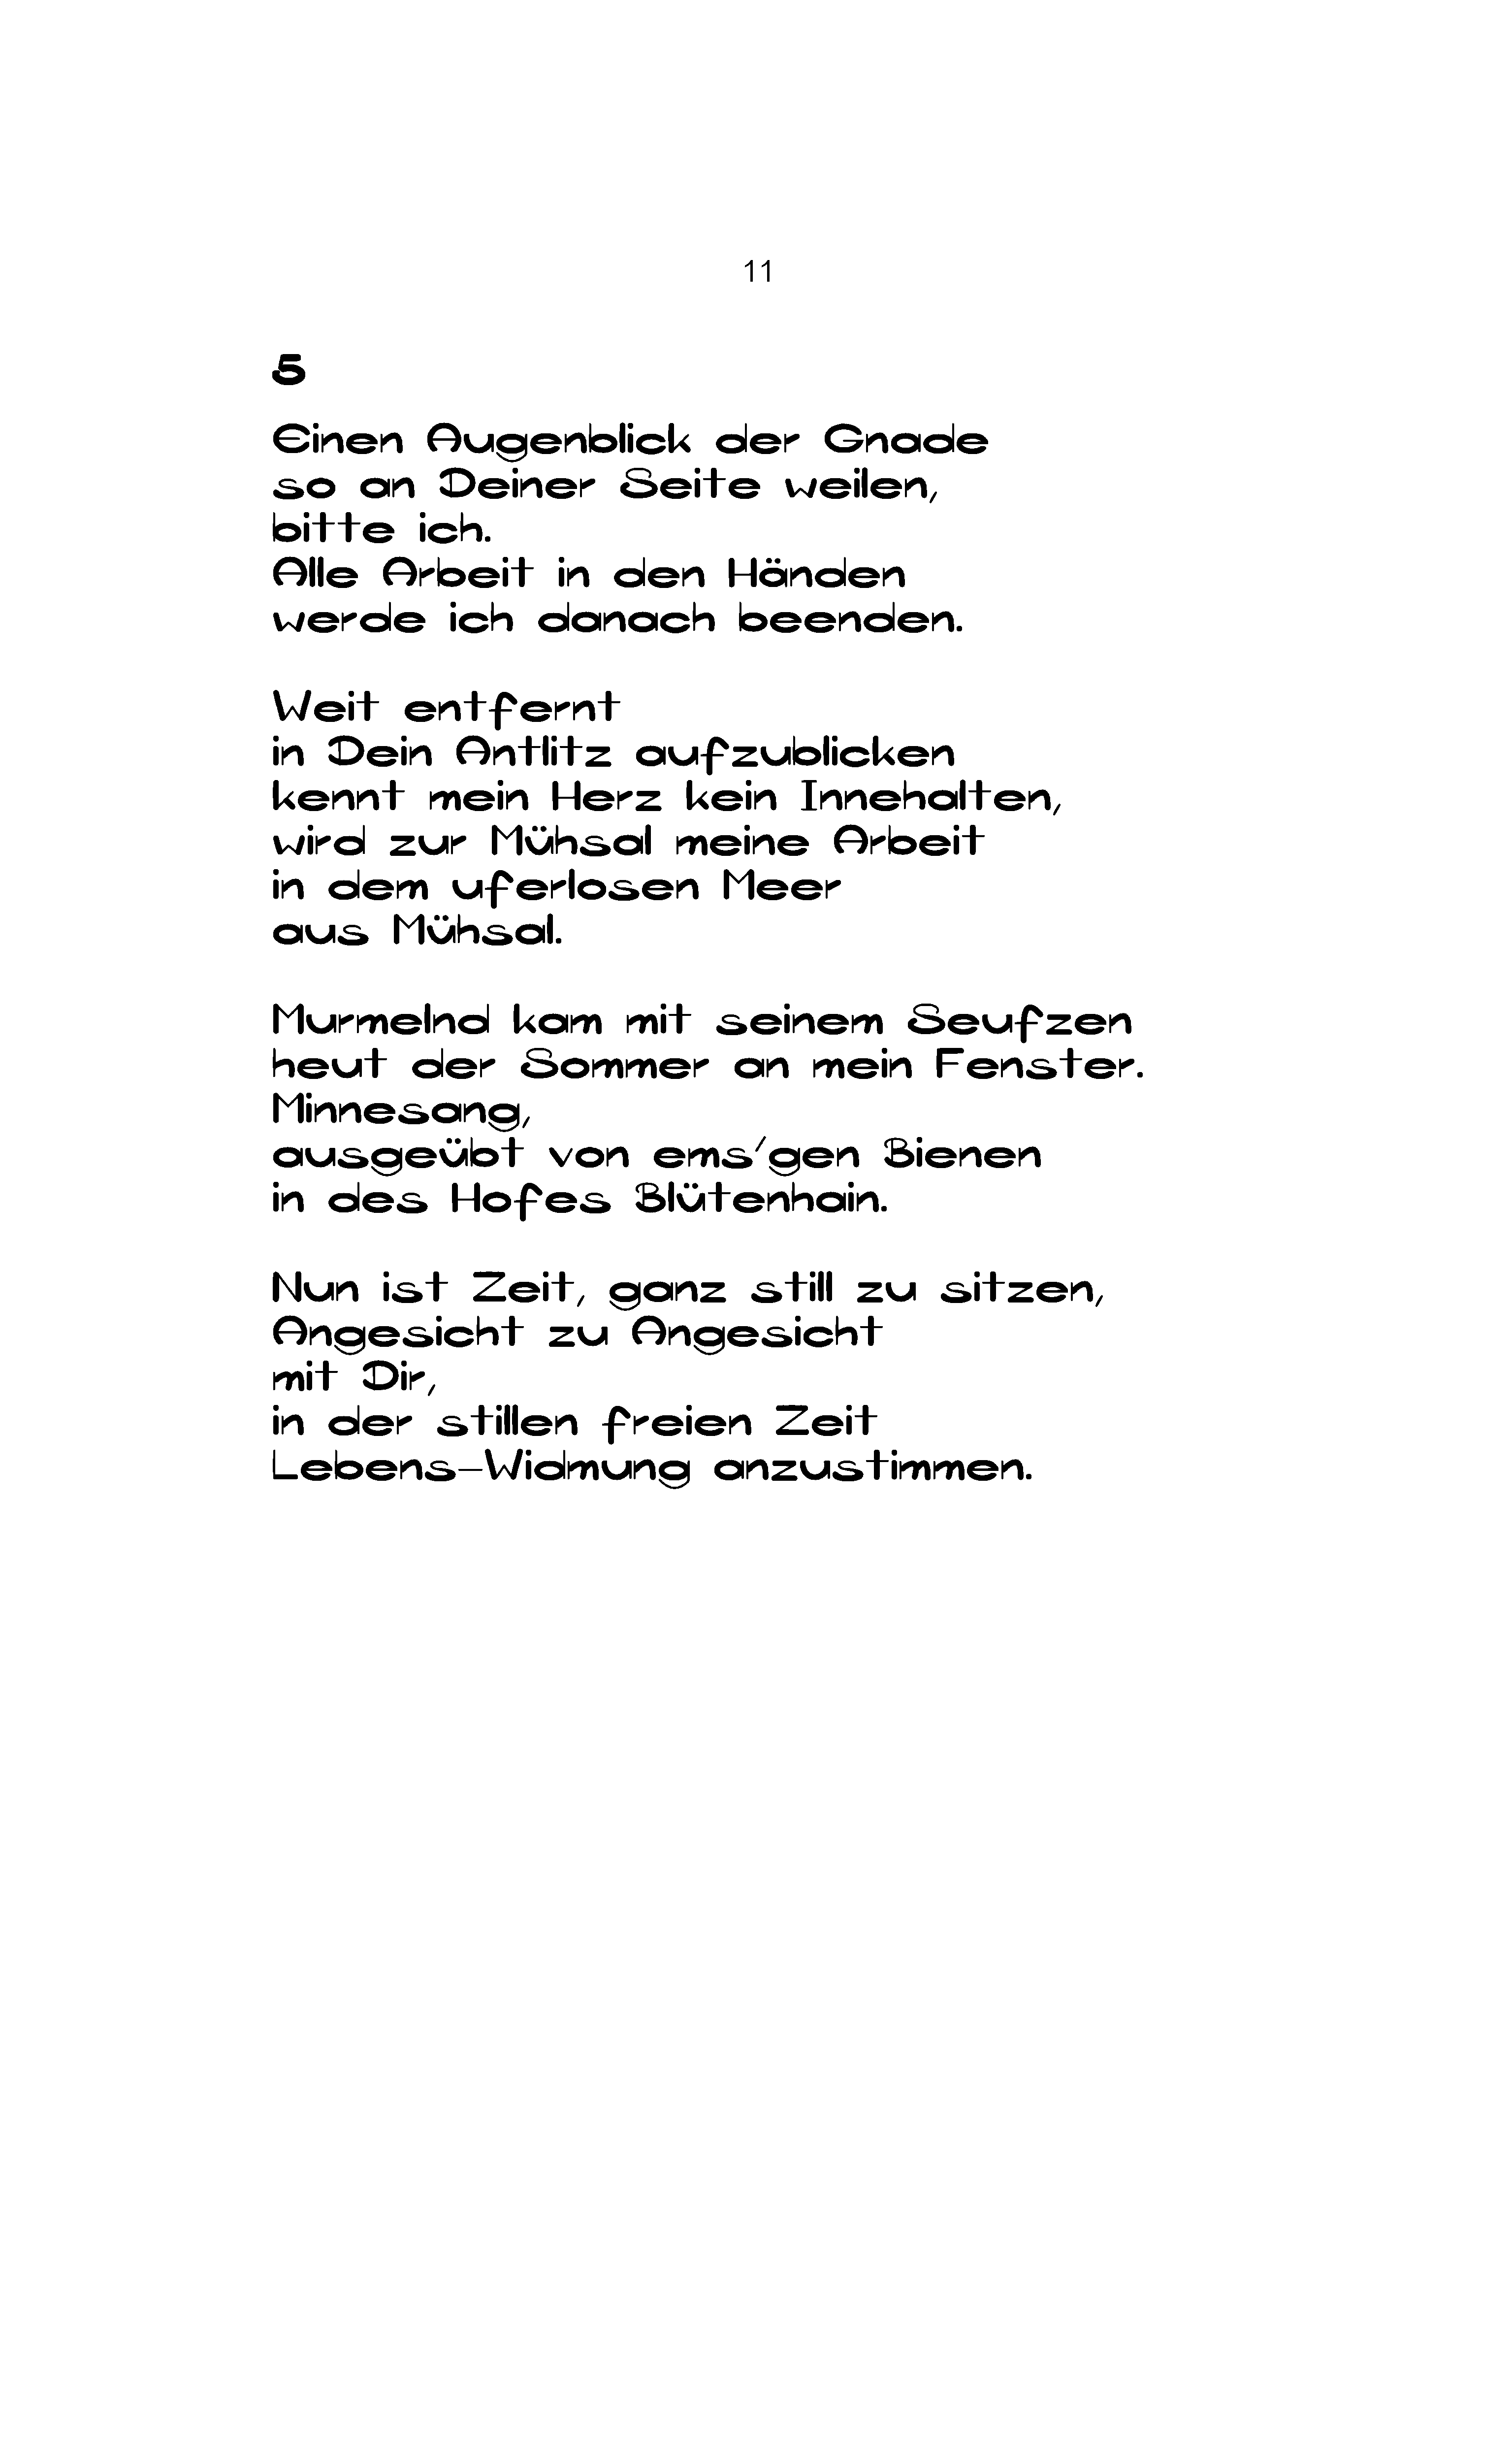 11
5
Einen Augenblick der Gnade
so an Deiner Seite weilen,
bitte ich.
Alle Arbeit in den Händen
werde ich danach beenden.
Weit entfernt
in Dein Antlitz aufzublicken
kennt mein Herz kein Innehalten,
wird zur Mühsal meine Arbeit
in dem uferlosen Meer
aus Mühsal.
Murmelnd kam mit seinem Seufzen
heut der Sommer an mein Fenster.
Minnesang,
ausgeübt von ems'gen Bienen
in des Hofes Blütenhain.
Nun ist Zeit, ganz still zu sitzen,
Angesicht zu Angesicht
mit Dir,
in der stillen freien Zeit
Lebens-Widmung anzustimmen.